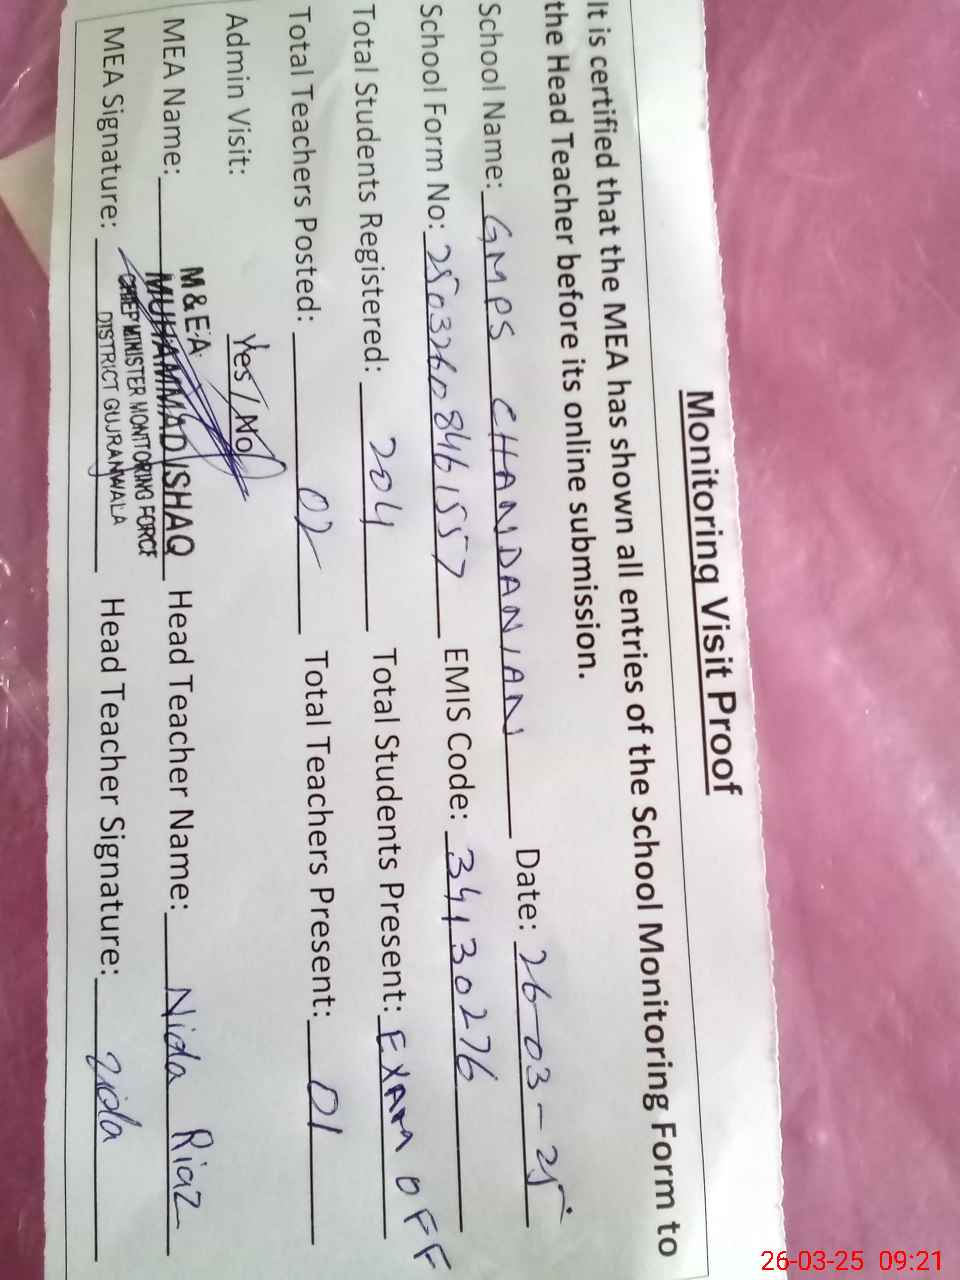 Monitoring Visit Proof
It is certified that the MEA has shown all entries of the School Monitoring Form to
the Head Teacher before its online submission.
School Name: GMPS CHANDANIAN Date: 26-03-25
School Form No: 25032608461557 EMIS Code: 34130276
Total Students Registered: 204 Total Students Present: EXAM OFF
Total Teachers Posted: 02 Total Teachers Present: 01
Admin Visit: Yes / No
M & E.A
MEA Name: MUHAMMAD ISHAQ Head Teacher Name: Nida Riaz
CHIEF MINISTER MONITORING FORCE
MEA Signature: DISTRICT GUJRANWALA Head Teacher Signature: Nida
26-03-25 09:21